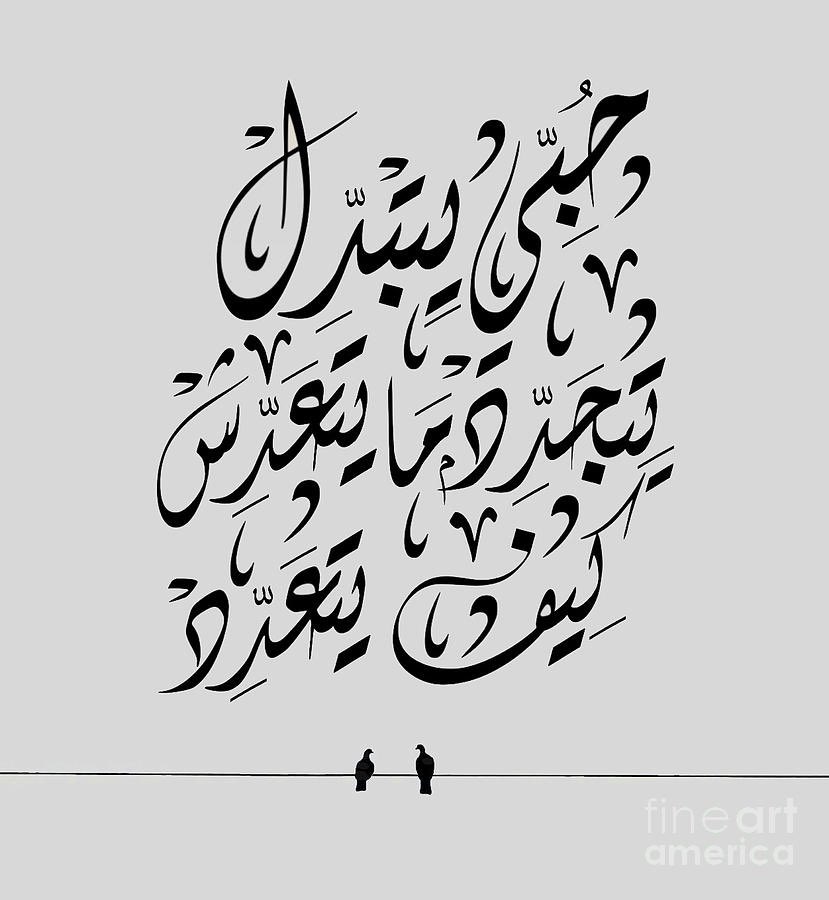 حُبّي يتبدّل
يَتجَدّد مَا يَتعَدّش
كِيف يَتعَدّد
fine art
america